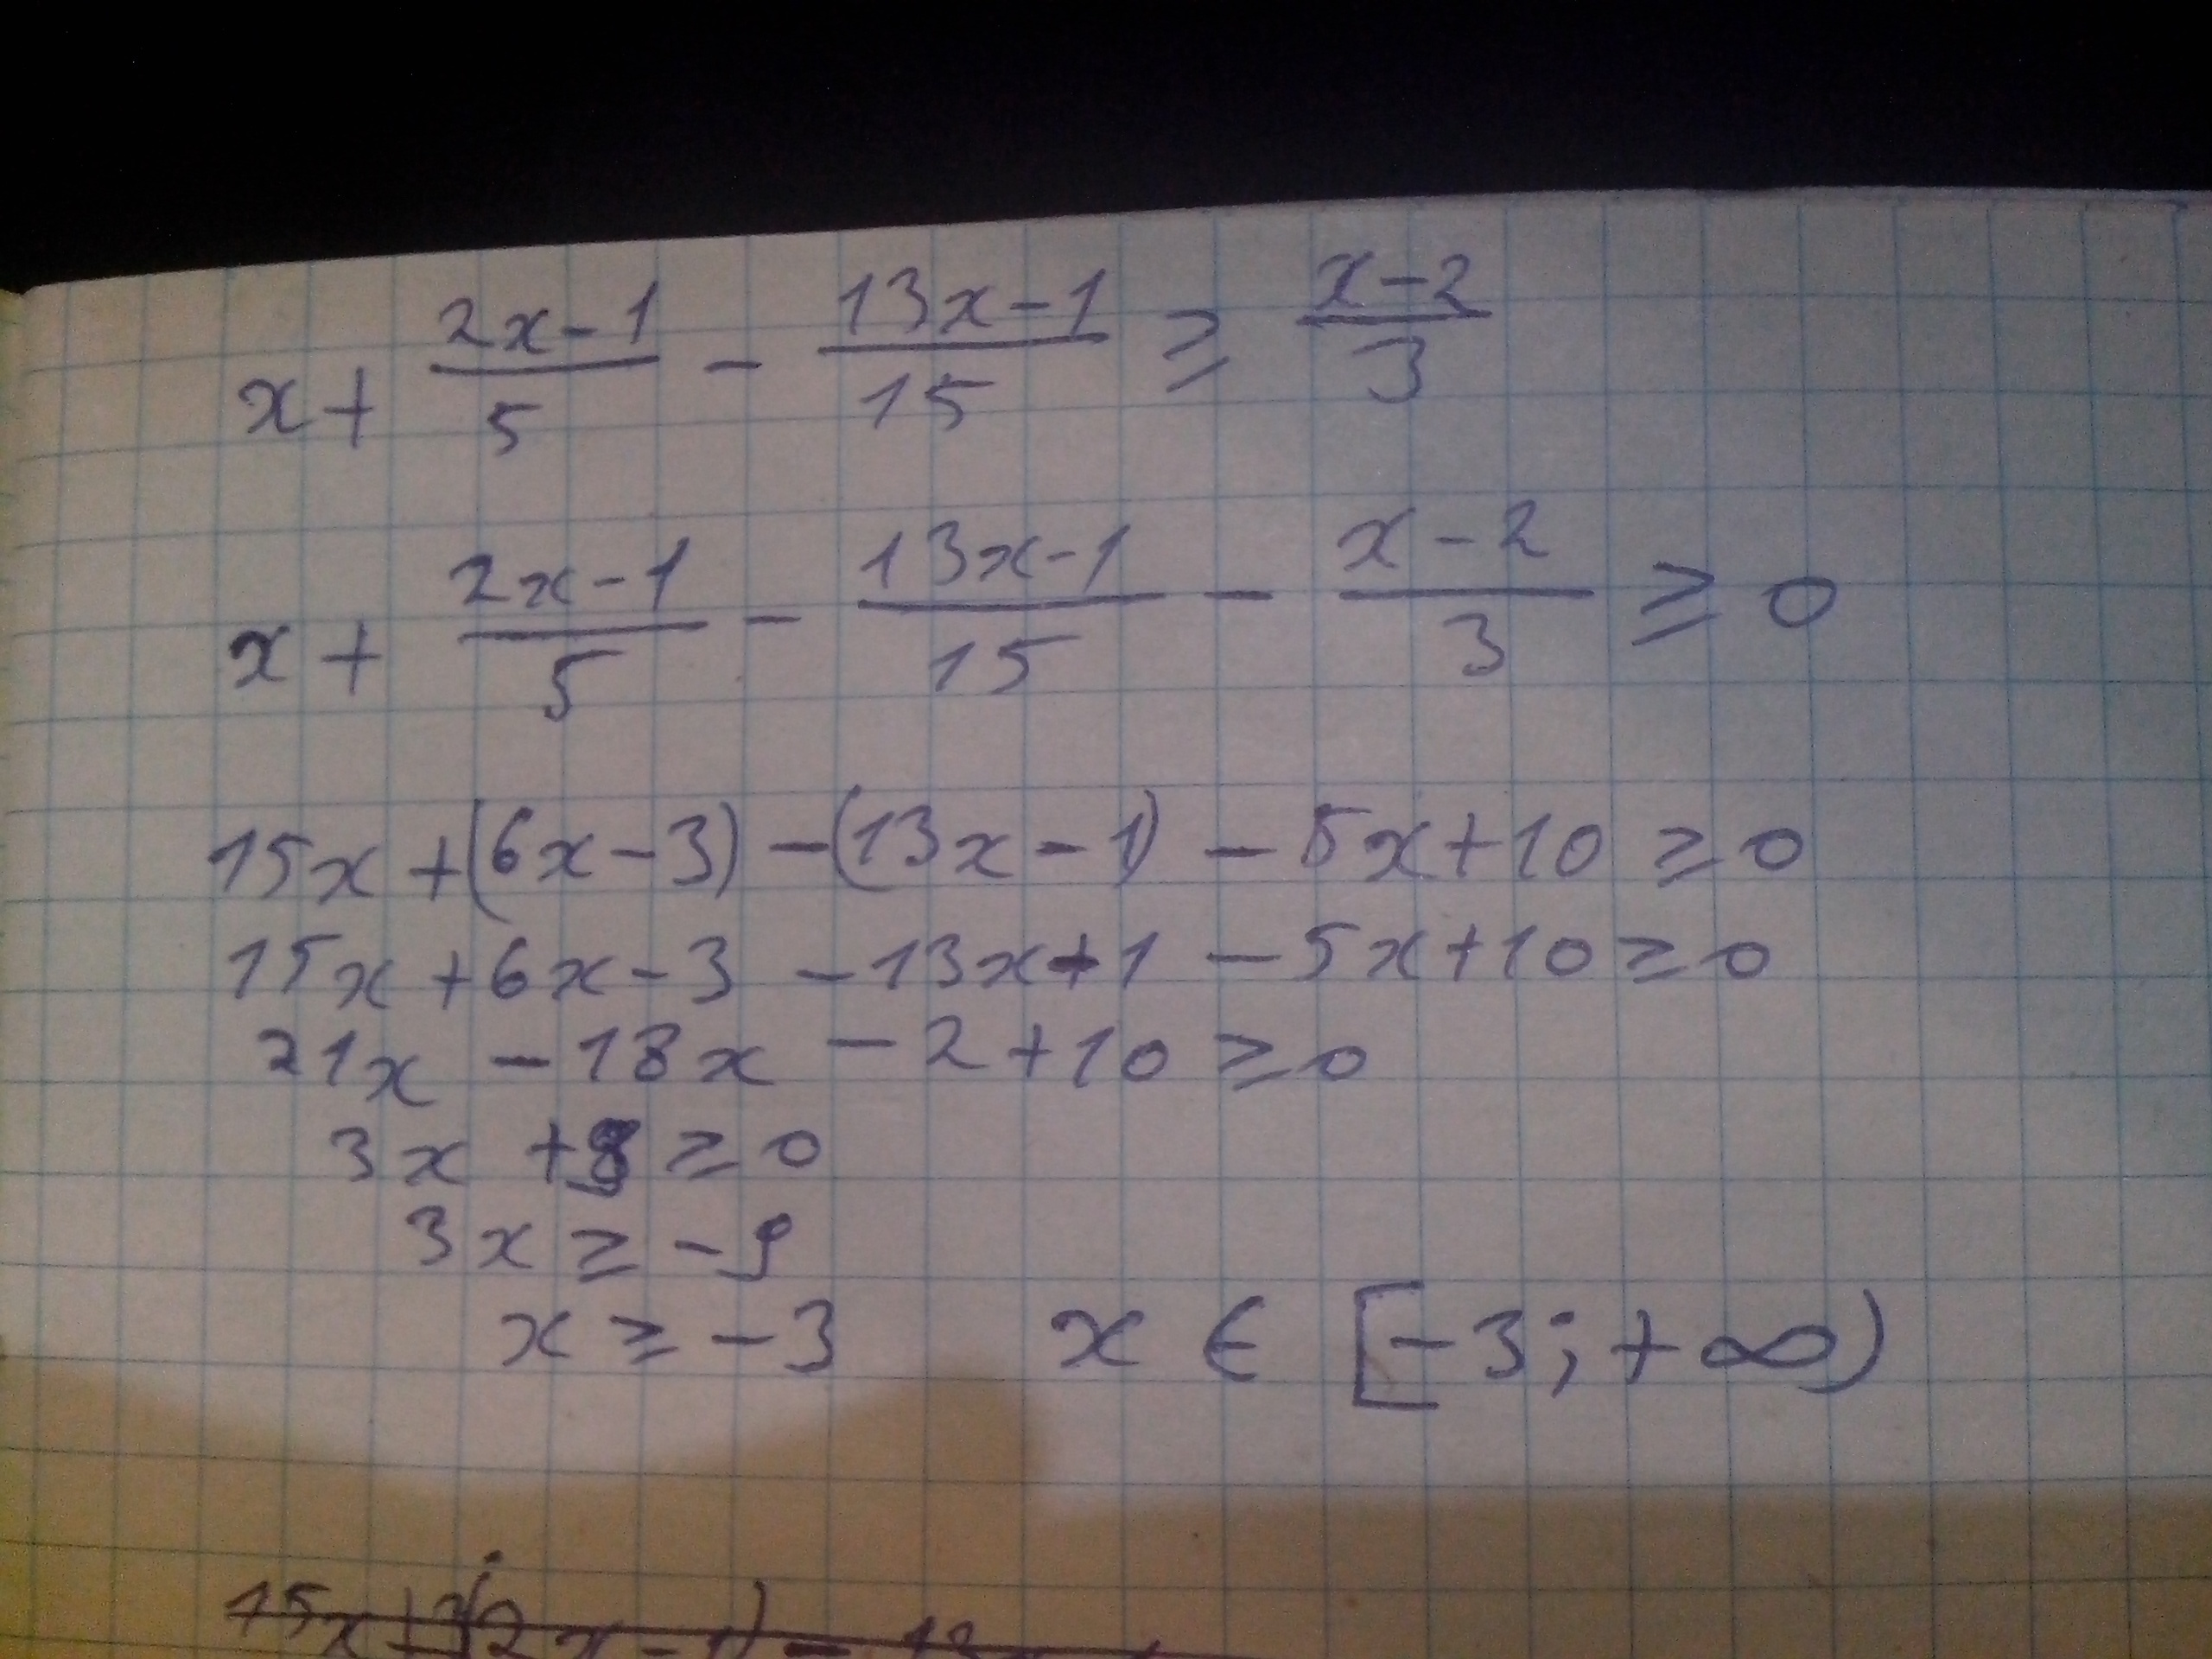 x + (2x-1)/5 - (13x-1)/15 ≥ (x-2)/3
x + (2x-1)/5 - (13x-1)/15 - (x-2)/3 ≥ 0
15x + (6x-3) - (13x-1) - 5x + 10 ≥ 0
15x + 6x - 3 - 13x + 1 - 5x + 10 ≥ 0
21x - 18x - 2 + 10 ≥ 0
3x + ≥ 0
3x ≥ -9
x ≥ -3 x ∈ [-3; +∞)
15x + 3(2x-1) -